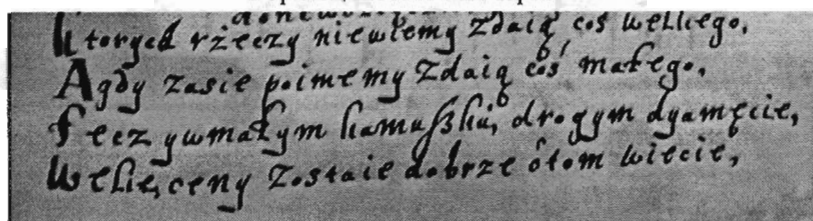 Ktorych rzeczy niewiemy zdaią coś welkiego,
A gdy zasie poimemy zdaią coś małego,
Lecz y w małym kamuszku, drogym dyamęcie,
Welie, ceny zostaie dobrze o tom wiecie,